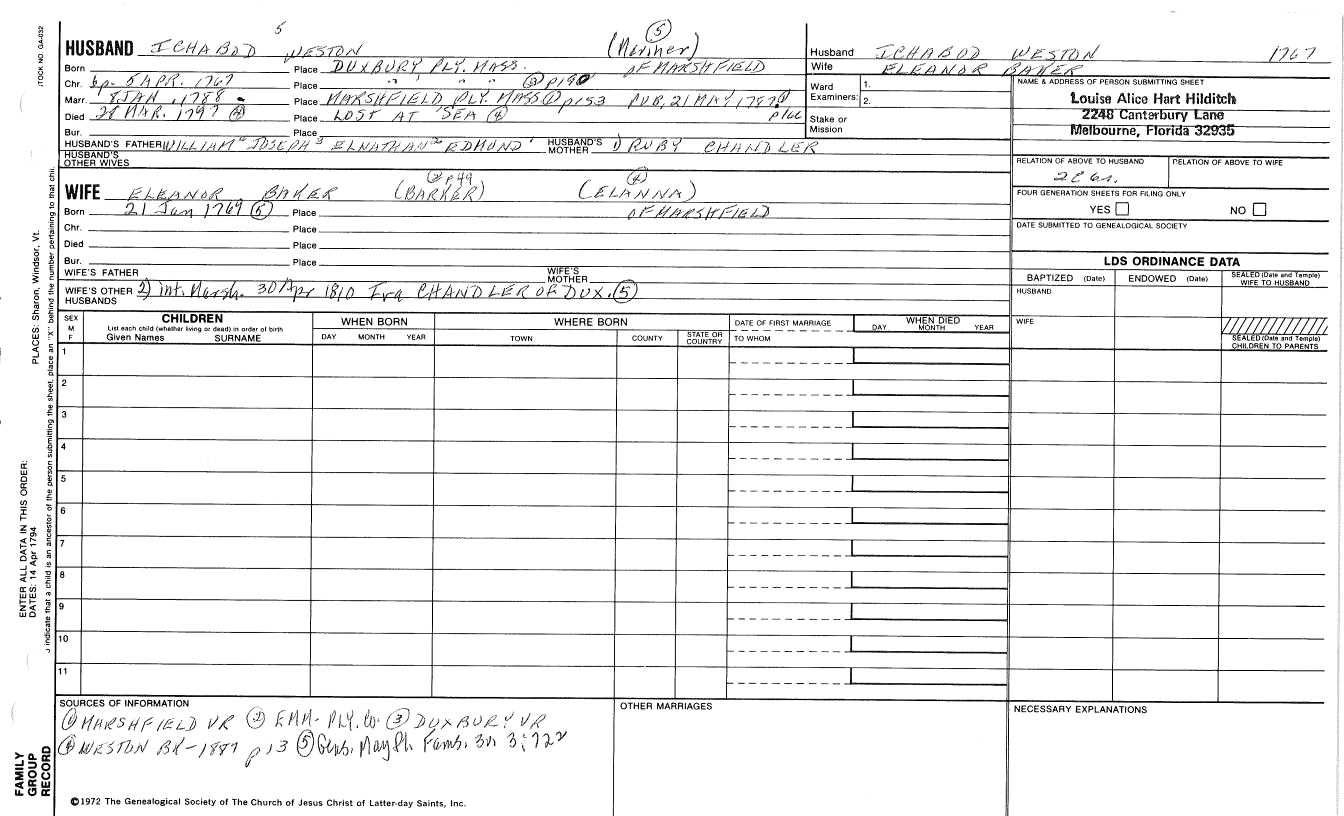 5
HUSBAND ICHABOD WESTON (Mariner) ⑤
Born Place DUXBURY PLY. MASS. OF MARSHFIELD
Chr. bp. 5 APR. 1767 Place " " " " ③ p190
Marr. 8 JAN. 1788 Place MARSHFIELD PLY. MASS ① p153 PUB, 21 MAY 1787 ① p166
Died 28 MAR. 1797 ④ Place LOST AT SEA ④
Bur. Place
HUSBAND'S FATHER WILLIAM⁴ JOSEPH³ ELNATHAN² EDMUND¹ HUSBAND'S MOTHER 1) RUBY CHANDLER
HUSBAND'S OTHER WIVES
WIFE ELEANOR BAKER (BARKER) ② p49 (ELANNA) ④
Born 21 Jan 1769 ⑤ Place OF MARSHFIELD
Chr. Place
Died Place
Bur. Place
WIFE'S FATHER WIFE'S MOTHER
WIFE'S OTHER HUSBANDS 2) int. Marsh. 30 Apr 1810 Ira CHANDLER OF DUX. ⑤
Husband ICHABOD WESTON 1767
Wife ELEANOR BAKER
Ward Examiners: 1.
2.
Stake or Mission
NAME & ADDRESS OF PERSON SUBMITTING SHEET
Louise Alice Hart Hilditch
2248 Canterbury Lane
Melbourne, Florida 32935
RELATION OF ABOVE TO HUSBAND RELATION OF ABOVE TO WIFE
FOUR GENERATION SHEETS FOR FILING ONLY
YES NO
DATE SUBMITTED TO GENEALOGICAL SOCIETY
LDS ORDINANCE DATA
BAPTIZED (Date) ENDOWED (Date) SEALED (Date and Temple) WIFE TO HUSBAND
HUSBAND
WIFE
SEALED (Date and Temple) CHILDREN TO PARENTS
SEX M F
CHILDREN
List each child (whether living or dead) in order of birth
Given Names SURNAME
WHEN BORN
DAY MONTH YEAR
WHERE BORN
TOWN COUNTY STATE OR COUNTRY
DATE OF FIRST MARRIAGE
TO WHOM
WHEN DIED
DAY MONTH YEAR
1
2
3
4
5
6
7
8
9
10
11
SOURCES OF INFORMATION
① MARSHFIELD VR ② EMM- PLY. Co. ③ DUXBURY VR
④ WESTON BR-1887 p13 ⑤ Gens. May Fl. Fams. 3v 3:722
OTHER MARRIAGES
NECESSARY EXPLANATIONS
©1972 The Genealogical Society of The Church of Jesus Christ of Latter-day Saints, Inc.
STOCK NO. GA-032
PLACES: Sharon, Windsor, Vt.
indicate that a child is an ancestor of the person submitting the sheet, place an "X" behind the number pertaining to that chil
ENTER ALL DATA IN THIS ORDER:
DATES: 14 Apr 1794
FAMILY
GROUP
RECORD